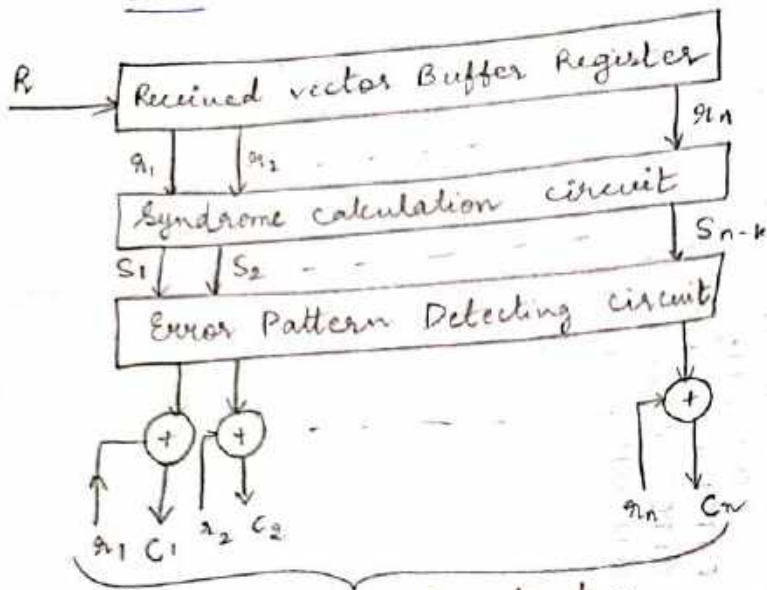 R
Received vector Buffer Register
r1 r2 rn
Syndrome calculation circuit
S1 S2 Sn-k
Error Pattern Detecting circuit
+ + +
r1 C1 r2 C2 rn Cn